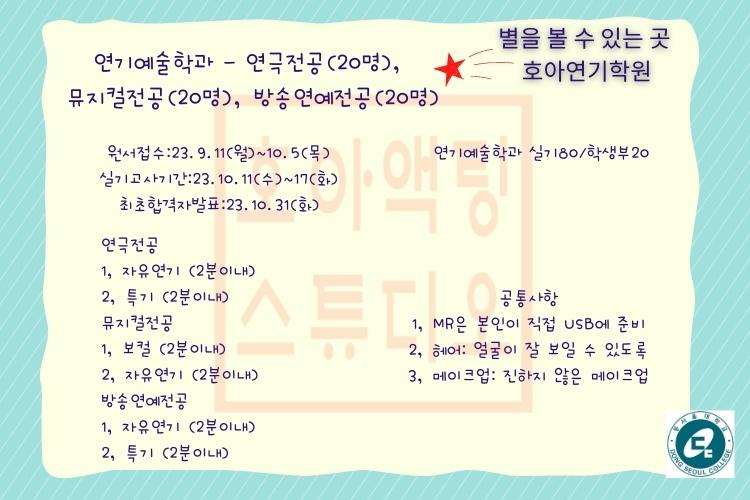 별을 볼 수 있는 곳
호아연기학원
연기예술학과 - 연극전공(20명),
뮤지컬전공(20명), 방송연예전공(20명)
원서접수:23.9.11(월)~10.5(목)
실기고사기간:23.10.11(수)~17(화)
최초합격자발표:23.10.31(화)
연기예술학과 실기80/학생부20
연극전공
1, 자유연기 (2분이내)
2, 특기 (2분이내)
뮤지컬전공
1, 보컬 (2분이내)
2, 자유연기 (2분이내)
방송연예전공
1, 자유연기 (2분이내)
2, 특기 (2분이내)
공통사항
1, MR은 본인이 직접 USB에 준비
2, 헤어: 얼굴이 잘 보일 수 있도록
3, 메이크업: 진하지 않은 메이크업
호아액팅
스튜디오
동서울대학교
DONG SEOUL COLLEGE